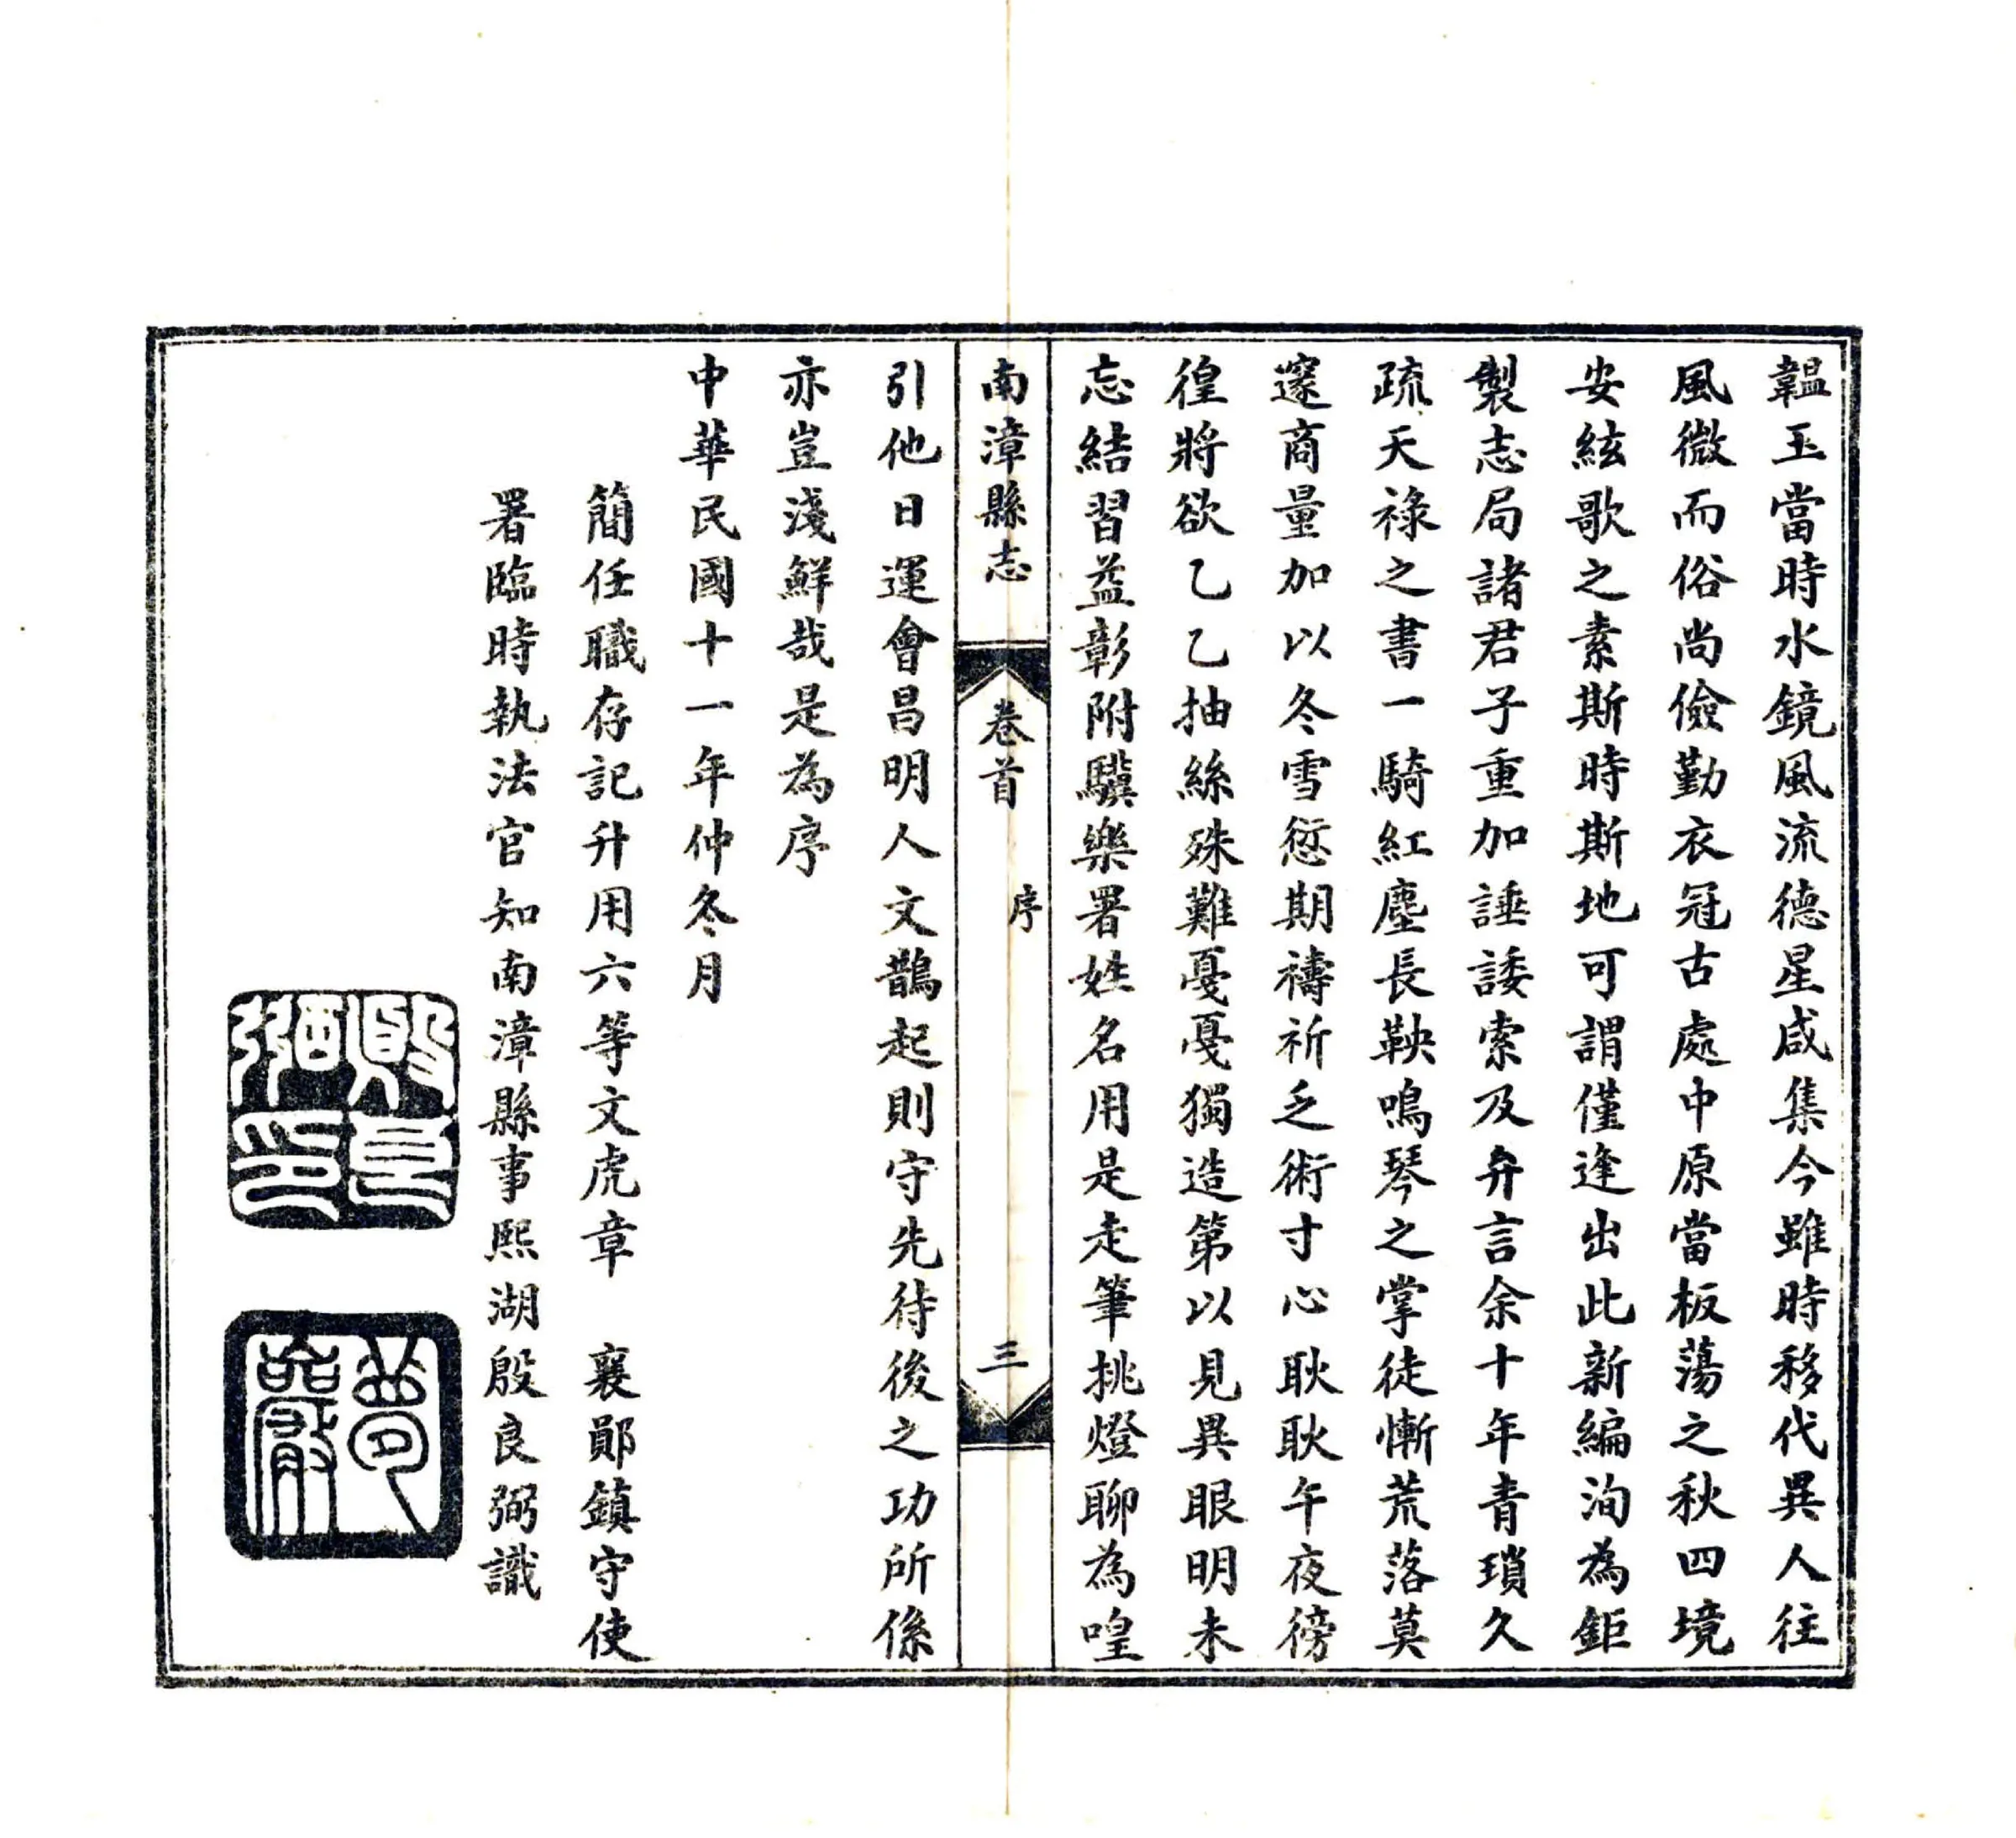 韞玉當時水鏡風流德星咸集今雖時移代異人往
風微而俗尚儉勤衣冠古處中原當板蕩之秋四境
安絃歌之素斯時斯地可謂僅逢出此新編洵為鉅
製志局諸君子重加諈諉索及弁言余十年青瑣久
疏天祿之書一騎紅塵長鞅鳴琴之掌徒慚荒落莫
邃商量加以冬雪愆期禱祈乏術寸心耿耿午夜徬
徨將欲乙乙抽絲殊難戞戞獨造第以見異眼明未
忘結習益彰附驥樂署姓名用是走筆挑燈聊為喤
南漳縣志
卷首
序
三
引他日運會昌明人文鵲起則守先待後之功所係
亦豈淺鮮哉是為序
中華民國十一年仲冬月
簡任職存記升用六等文虎章 襄鄖鎮守使
署臨時執法官知南漳縣事熙湖殷良弼識
殷良弼印
夢巖